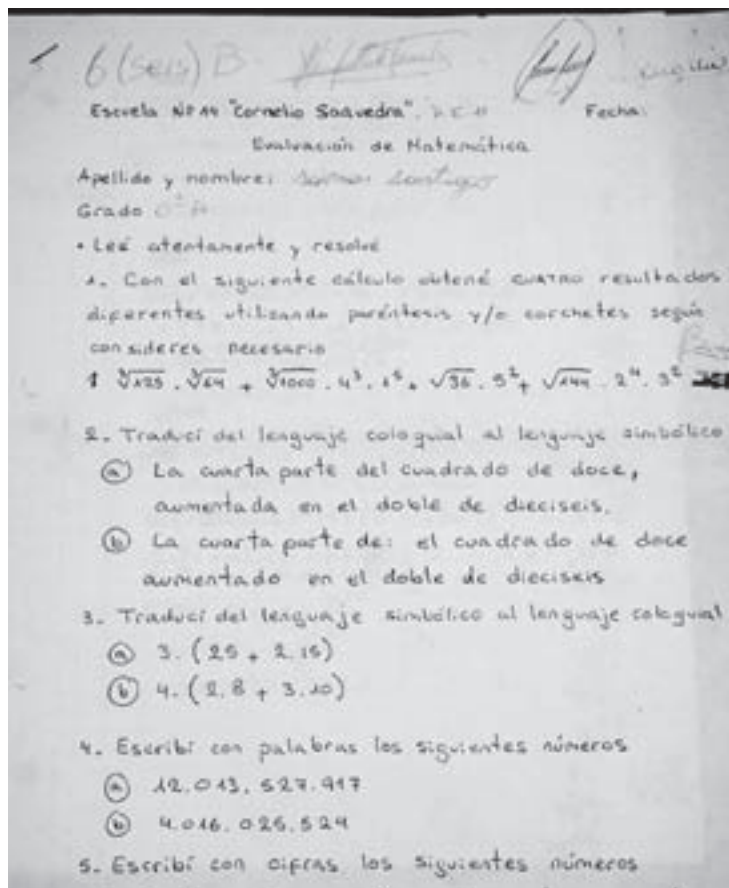 6 (seis) B
Escuela Nº 14 "Cornelio Saavedra". Fecha:
Evaluación de Matemática
Apellido y nombre: Santiago
Grado
• Leé atentamente y resolvé
1. Con el siguiente cálculo obtené cuatro resultados
diferentes utilizando paréntesis y/o corchetes según
consideres necesario
∛125 . ∛64 + ∛1000 . 4³ . 1⁵ + √36 . 5² + √144 . 2⁴ . 3²
2. Traducí del lenguaje coloquial al lenguaje simbólico
a La cuarta parte del cuadrado de doce,
aumentada en el doble de dieciseis.
b La cuarta parte de: el cuadrado de doce
aumentado en el doble de dieciseis
3. Traducí del lenguaje simbólico al lenguaje coloquial
a 3. (25 + 2.15)
b 4. (2.8 + 3.10)
4. Escribí con palabras los siguientes números
a 12.013.527.917
b 4.016.025.524
5. Escribí con cifras los siguientes números